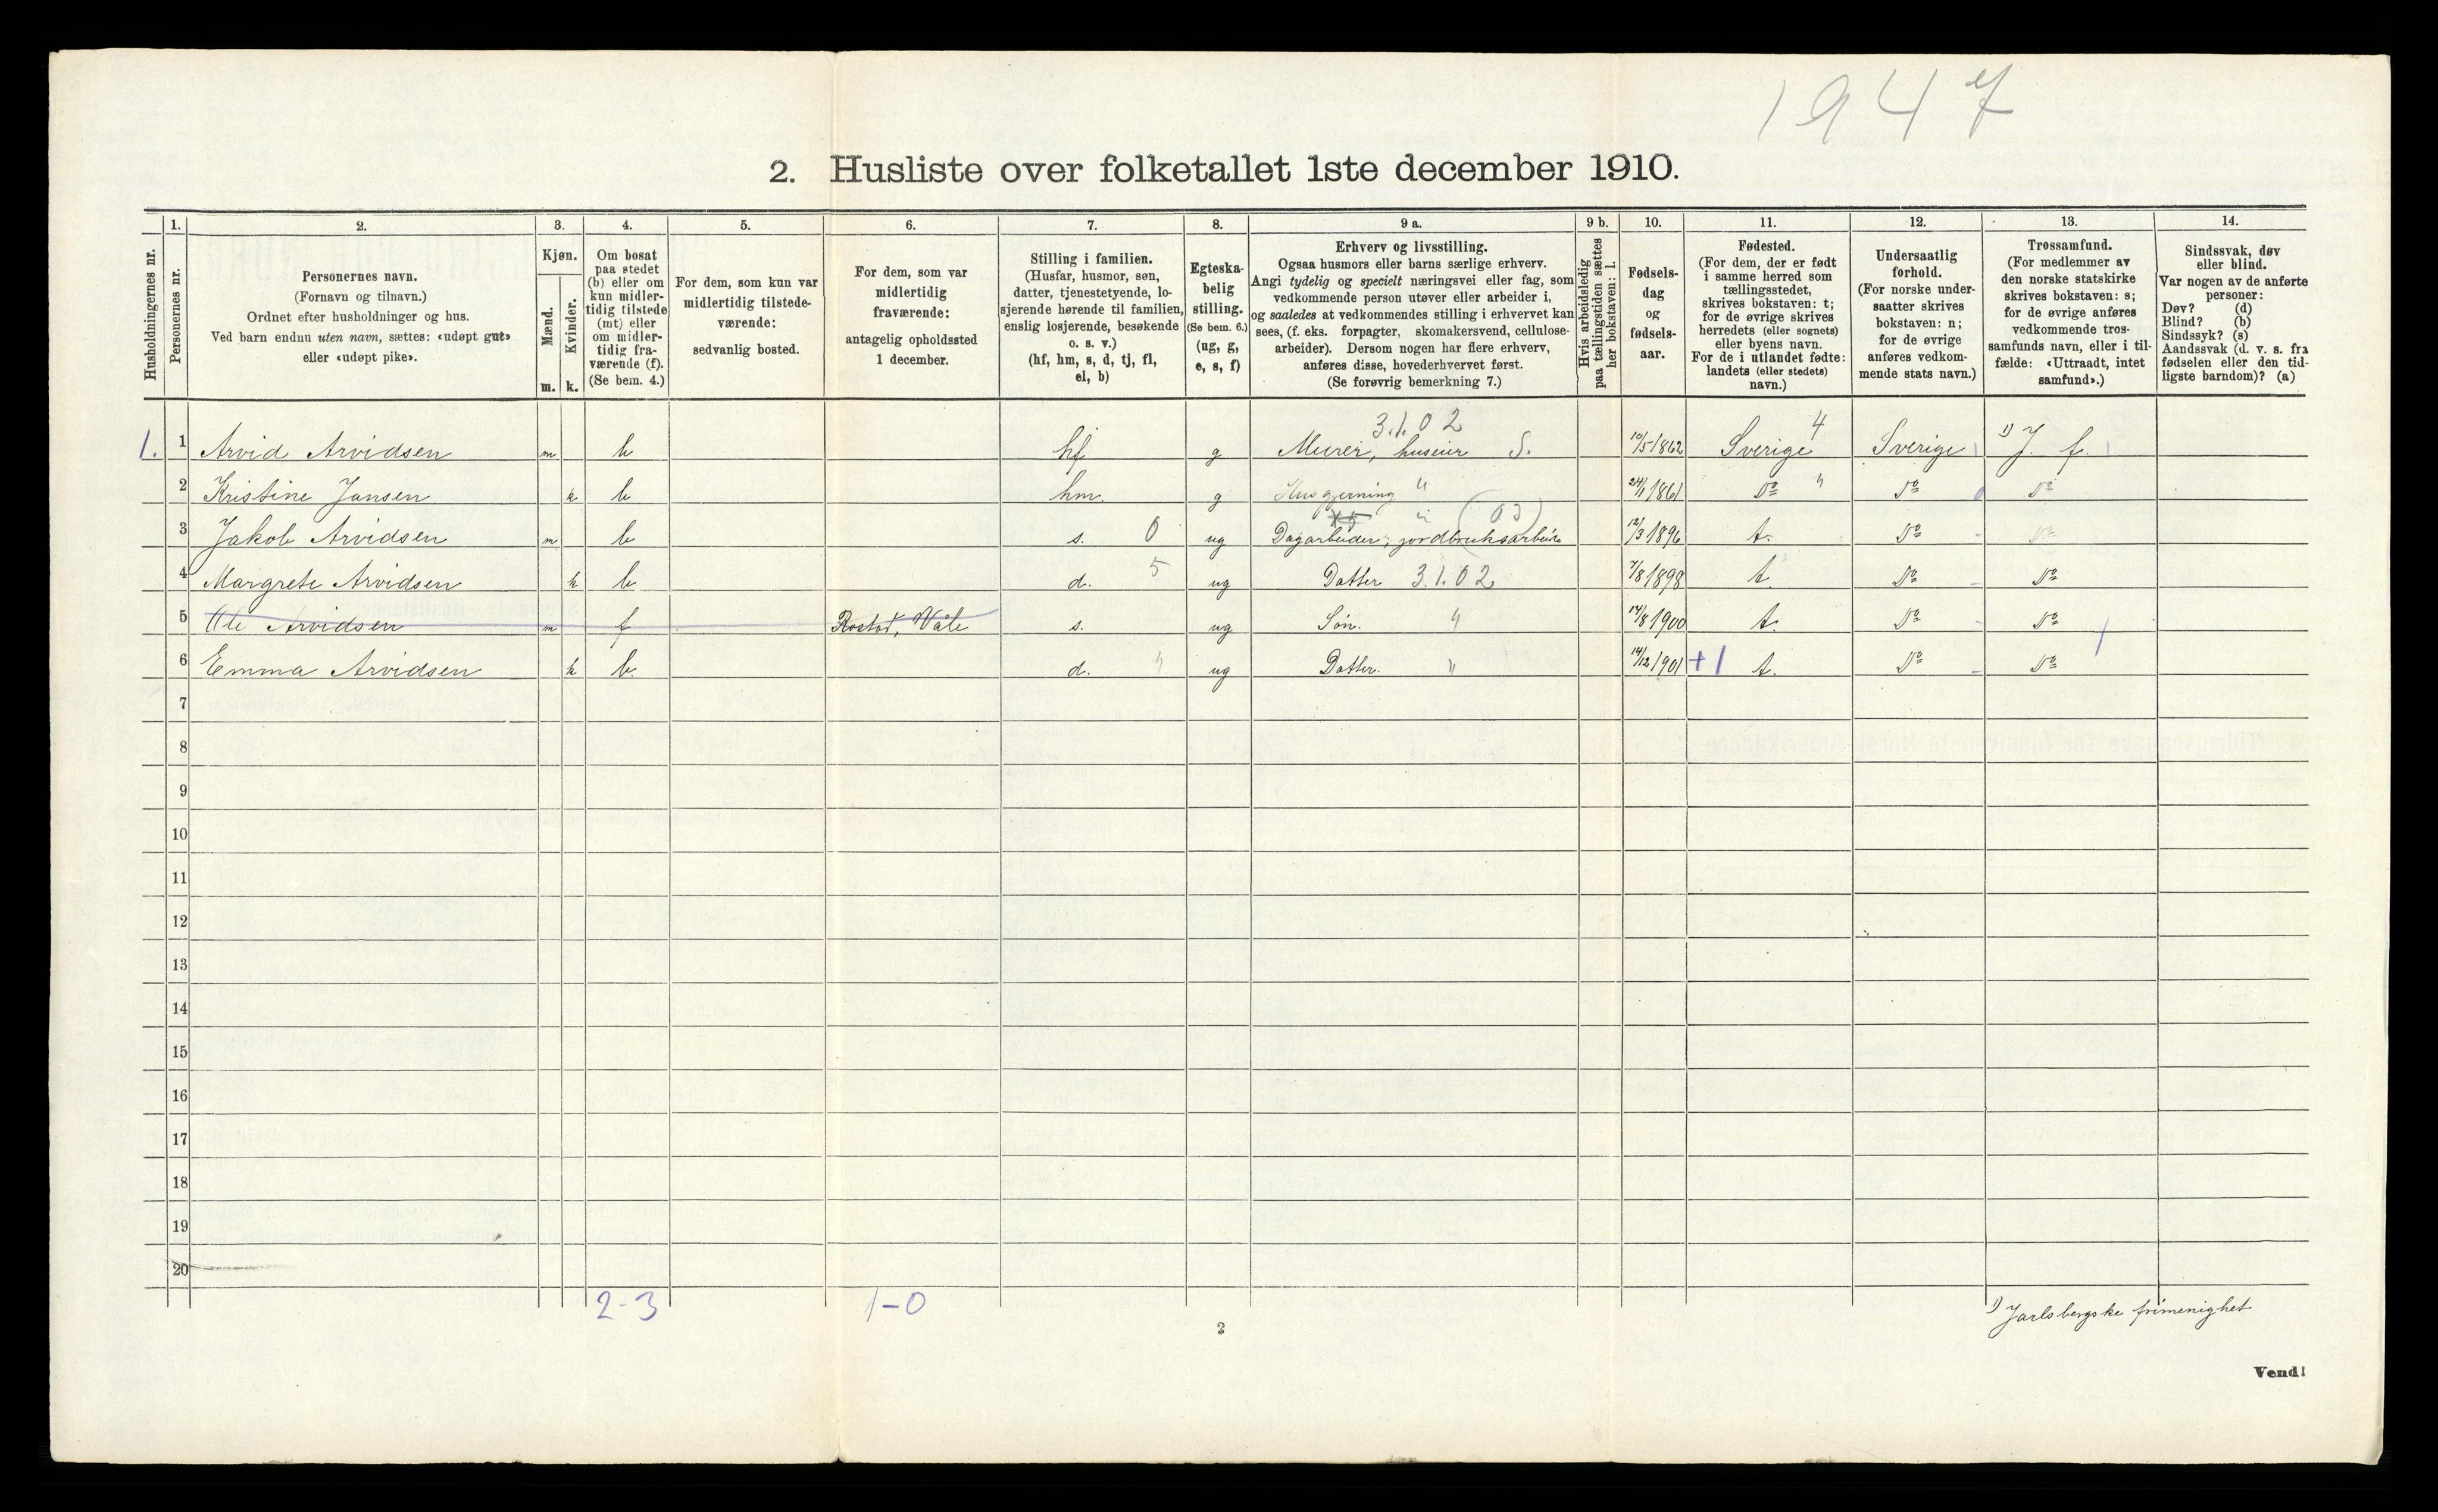 1947
2. Husliste over folketallet 1ste december 1910.
Husholdningernes nr.
1. Personernes nr.
2. Personernes navn.
(Fornavn og tilnavn.)
Ordnet efter husholdninger og hus.
Ved barn endnu uten navn, sættes: «udøpt gut»
eller «udøpt pike».
3. Kjøn.
Mænd. m.
Kvinder. k.
4. Om bosat
paa stedet
(b) eller om
kun midler-
tidig tilstede
(mt) eller
om midler-
tidig fra-
værende (f).
(Se bem. 4.)
5. For dem, som kun var
midlertidig tilstede-
værende:
sedvanlig bosted.
6. For dem, som var
midlertidig
fraværende:
antagelig opholdssted
1 december.
7. Stilling i familien.
(Husfar, husmor, søn,
datter, tjenestetyende, lo-
sjerende hørende til familien,
enslig losjerende, besøkende
o. s. v.)
(hf, hm, s, d, tj, fl,
el, b)
8. Egteska-
belig
stilling.
(Se bem. 6.)
(ug, g,
e, s, f)
9 a. Erhverv og livsstilling.
Ogsaa husmors eller barns særlige erhverv.
Angi tydelig og specielt næringsvei eller fag, som
vedkommende person utøver eller arbeider i,
og saaledes at vedkommendes stilling i erhvervet kan
sees, (f. eks. forpagter, skomakersvend, cellulose-
arbeider). Dersom nogen har flere erhverv,
anføres disse, hovederhvervet først.
(Se forøvrig bemerkning 7.)
9 b. Hvis arbeidsledig
paa tællingstiden sættes
her bokstaven: l.
10. Fødsels-
dag
og
fødsels-
aar.
11. Fødested.
(For dem, der er født
i samme herred som
tællingsstedet,
skrives bokstaven: t;
for de øvrige skrives
herredets (eller sognets)
eller byens navn.
For de i utlandet fødte:
landets (eller stedets)
navn.)
12. Undersaatlig
forhold.
(For norske under-
saatter skrives
bokstaven: n;
for de øvrige
anføres vedkom-
mende stats navn.)
13. Trossamfund.
(For medlemmer av
den norske statskirke
skrives bokstaven: s;
for de øvrige anføres
vedkommende tros-
samfunds navn, eller i til-
fælde: «Uttraadt, intet
samfund».)
14. Sindssvak, døv
eller blind.
Var nogen av de anførte
personer:
Døv? (d)
Blind? (b)
Sindssyk? (s)
Aandssvak (d. v. s. fra
fødselen eller den tid-
ligste barndom)? (a)
3.1.02
1. 1 Arvid Arvidsen m b hf g Murer, huseier S. 10/5 1862 Sverige 4 Sverige 1) J. f.
2 Kristine Jansen k b hm. g Husgjerning " 24/1 1861 Do " Do Do
3 Jakob Arvidsen m b s. 0 ug Dagarbeider, jordbruksarbeide 12/3 1896 t. Do Do
4 Margrete Arvidsen k b d. 5 ug Datter 3.1.02 7/8 1898 t. Do Do
5 Ole Arvidsen m f Rostad, Våle s. ug Søn. " 14/8 1900 t. Do Do
6 Emma Arvidsen k b. d. " ug Datter. " 14/12 1901 +1 t. Do Do
7
8
9
10
11
12
13
14
15
16
17
18
19
20
2-3 1-0
1) Jarlsbergske frimenighet
2
Vend!